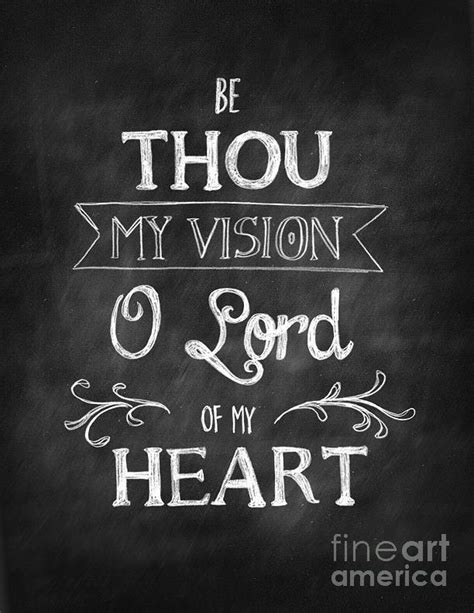 BE
THOU
MY VISION
O Lord
OF MY
HEART
fineart
america